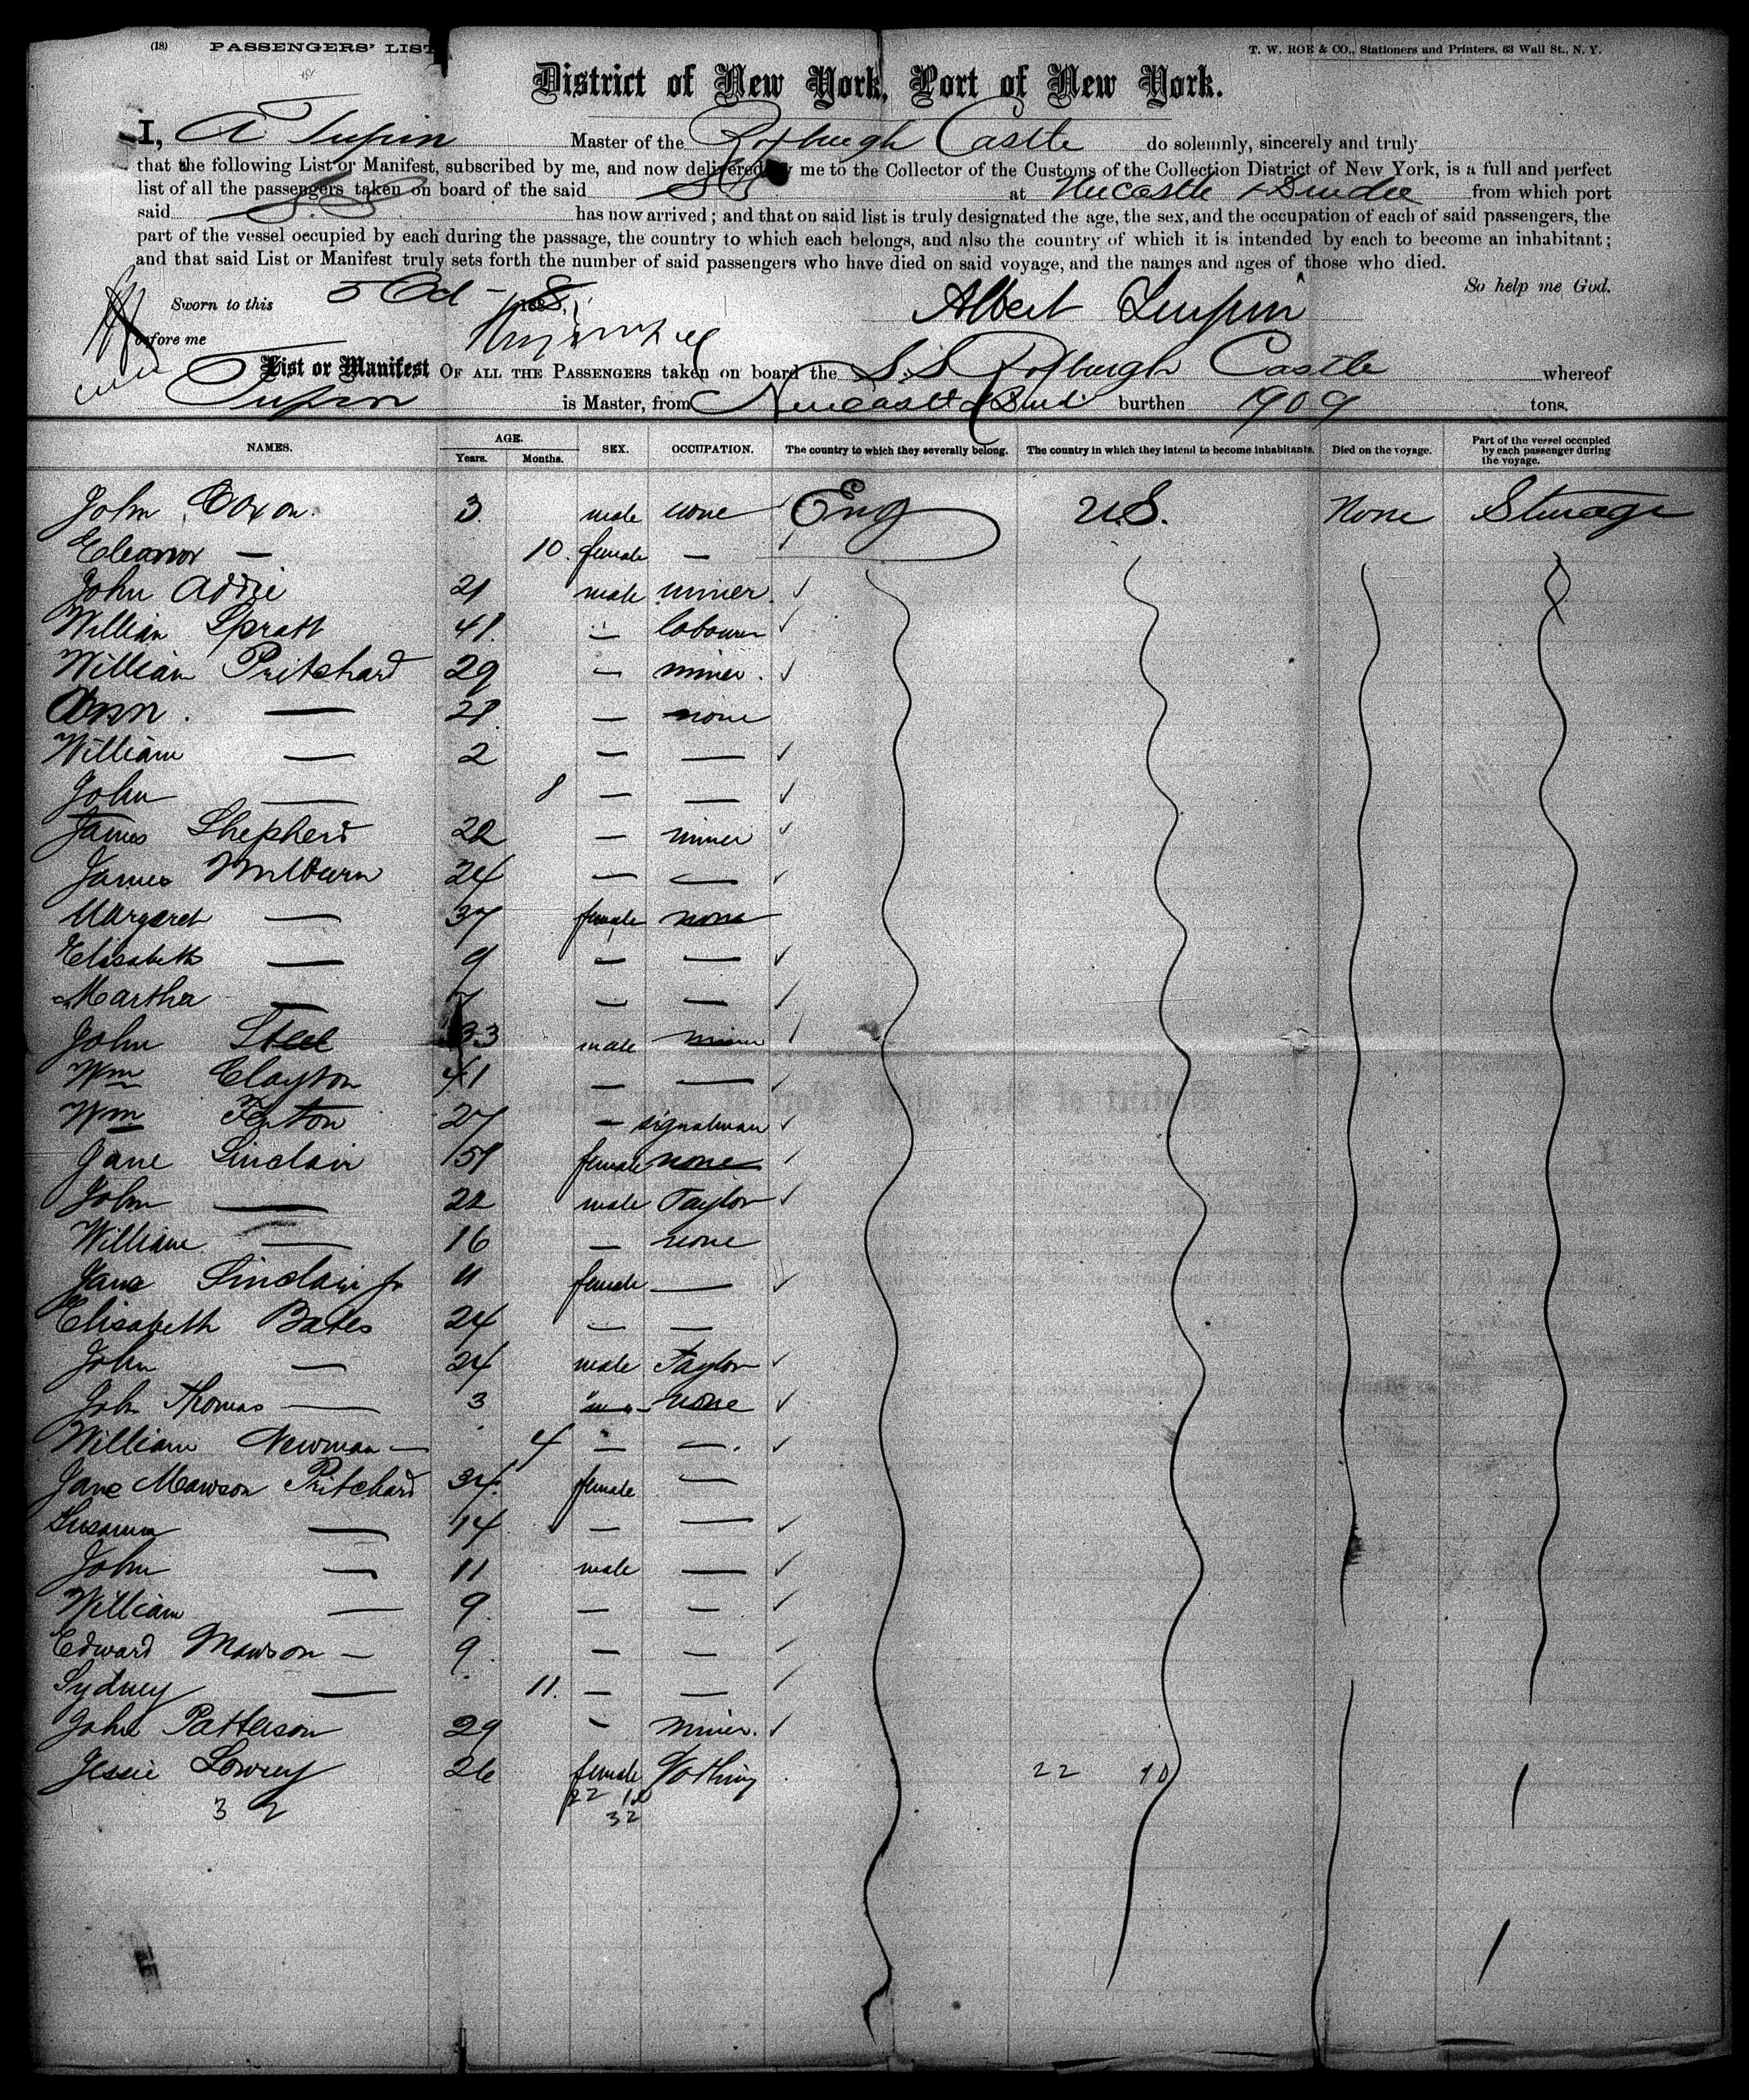 (18) PASSENGERS' LIST
T. W. ROE & CO., Stationers and Printers, 63 Wall St., N. Y.
District of New York, Port of New York.
I, A Turpin Master of the Roxburgh Castle do solemnly, sincerely and truly
that the following List or Manifest, subscribed by me, and now delivered by me to the Collector of the Customs of the Collection District of New York, is a full and perfect
list of all the passengers taken on board of the said SS at Newcastle & Dundee from which port
said S.S. has now arrived; and that on said list is truly designated the age, the sex, and the occupation of each of said passengers, the
part of the vessel occupied by each during the passage, the country to which each belongs, and also the country of which it is intended by each to become an inhabitant;
and that said List or Manifest truly sets forth the number of said passengers who have died on said voyage, and the names and ages of those who died.
So help me God.
Sworn to this 5 Oct - 1888. Albert Turpin
before me
List or Manifest OF ALL THE PASSENGERS taken on board the S.S Roxburgh Castle whereof
Turpin is Master, from Newcastle & Dund. burthen 1909 tons.
NAMES. AGE. Years. Months. SEX. OCCUPATION. The country to which they severally belong. The country in which they intend to become inhabitants. Died on the voyage. Part of the vessel occupied by each passenger during the voyage.
John Coxon. 3 male none Eng U.S. None Steerage
Eleanor — 10. female —
John Addie 21 male miner
William Spratt 41. — labourer
William Pritchard 29 — miner.
Ann. — 28. — none
William — 2 — —
John — 8 — —
James Shepherd 22 — miner
James Milburn 24 — —
Margaret — 37 female none
Elisabeth — 9 — —
Martha — 7 — —
John Steel 33 male miner
Wm Clayton 41 — —
Wm Fenton 27 — signalman
Jane Sinclair 51 female none
John — 22 male Taylor
William — 16 — none
Jane Sinclair jr 11 female —
Elisabeth Bates 24 — —
John — 24 male Taylor
John Thomas — 3 — none
William Newman — 4 — —.
Jane Mawson Pritchard 34. female —
Susanna — 14 — —
John — 11 male —
William — 9. — —
Edward Mawson — 9. — —
Sydney — 11. — —
John Patterson 29 — miner.
Jessie Lowrey 26 female Nothing 22 10
32 22 10
32